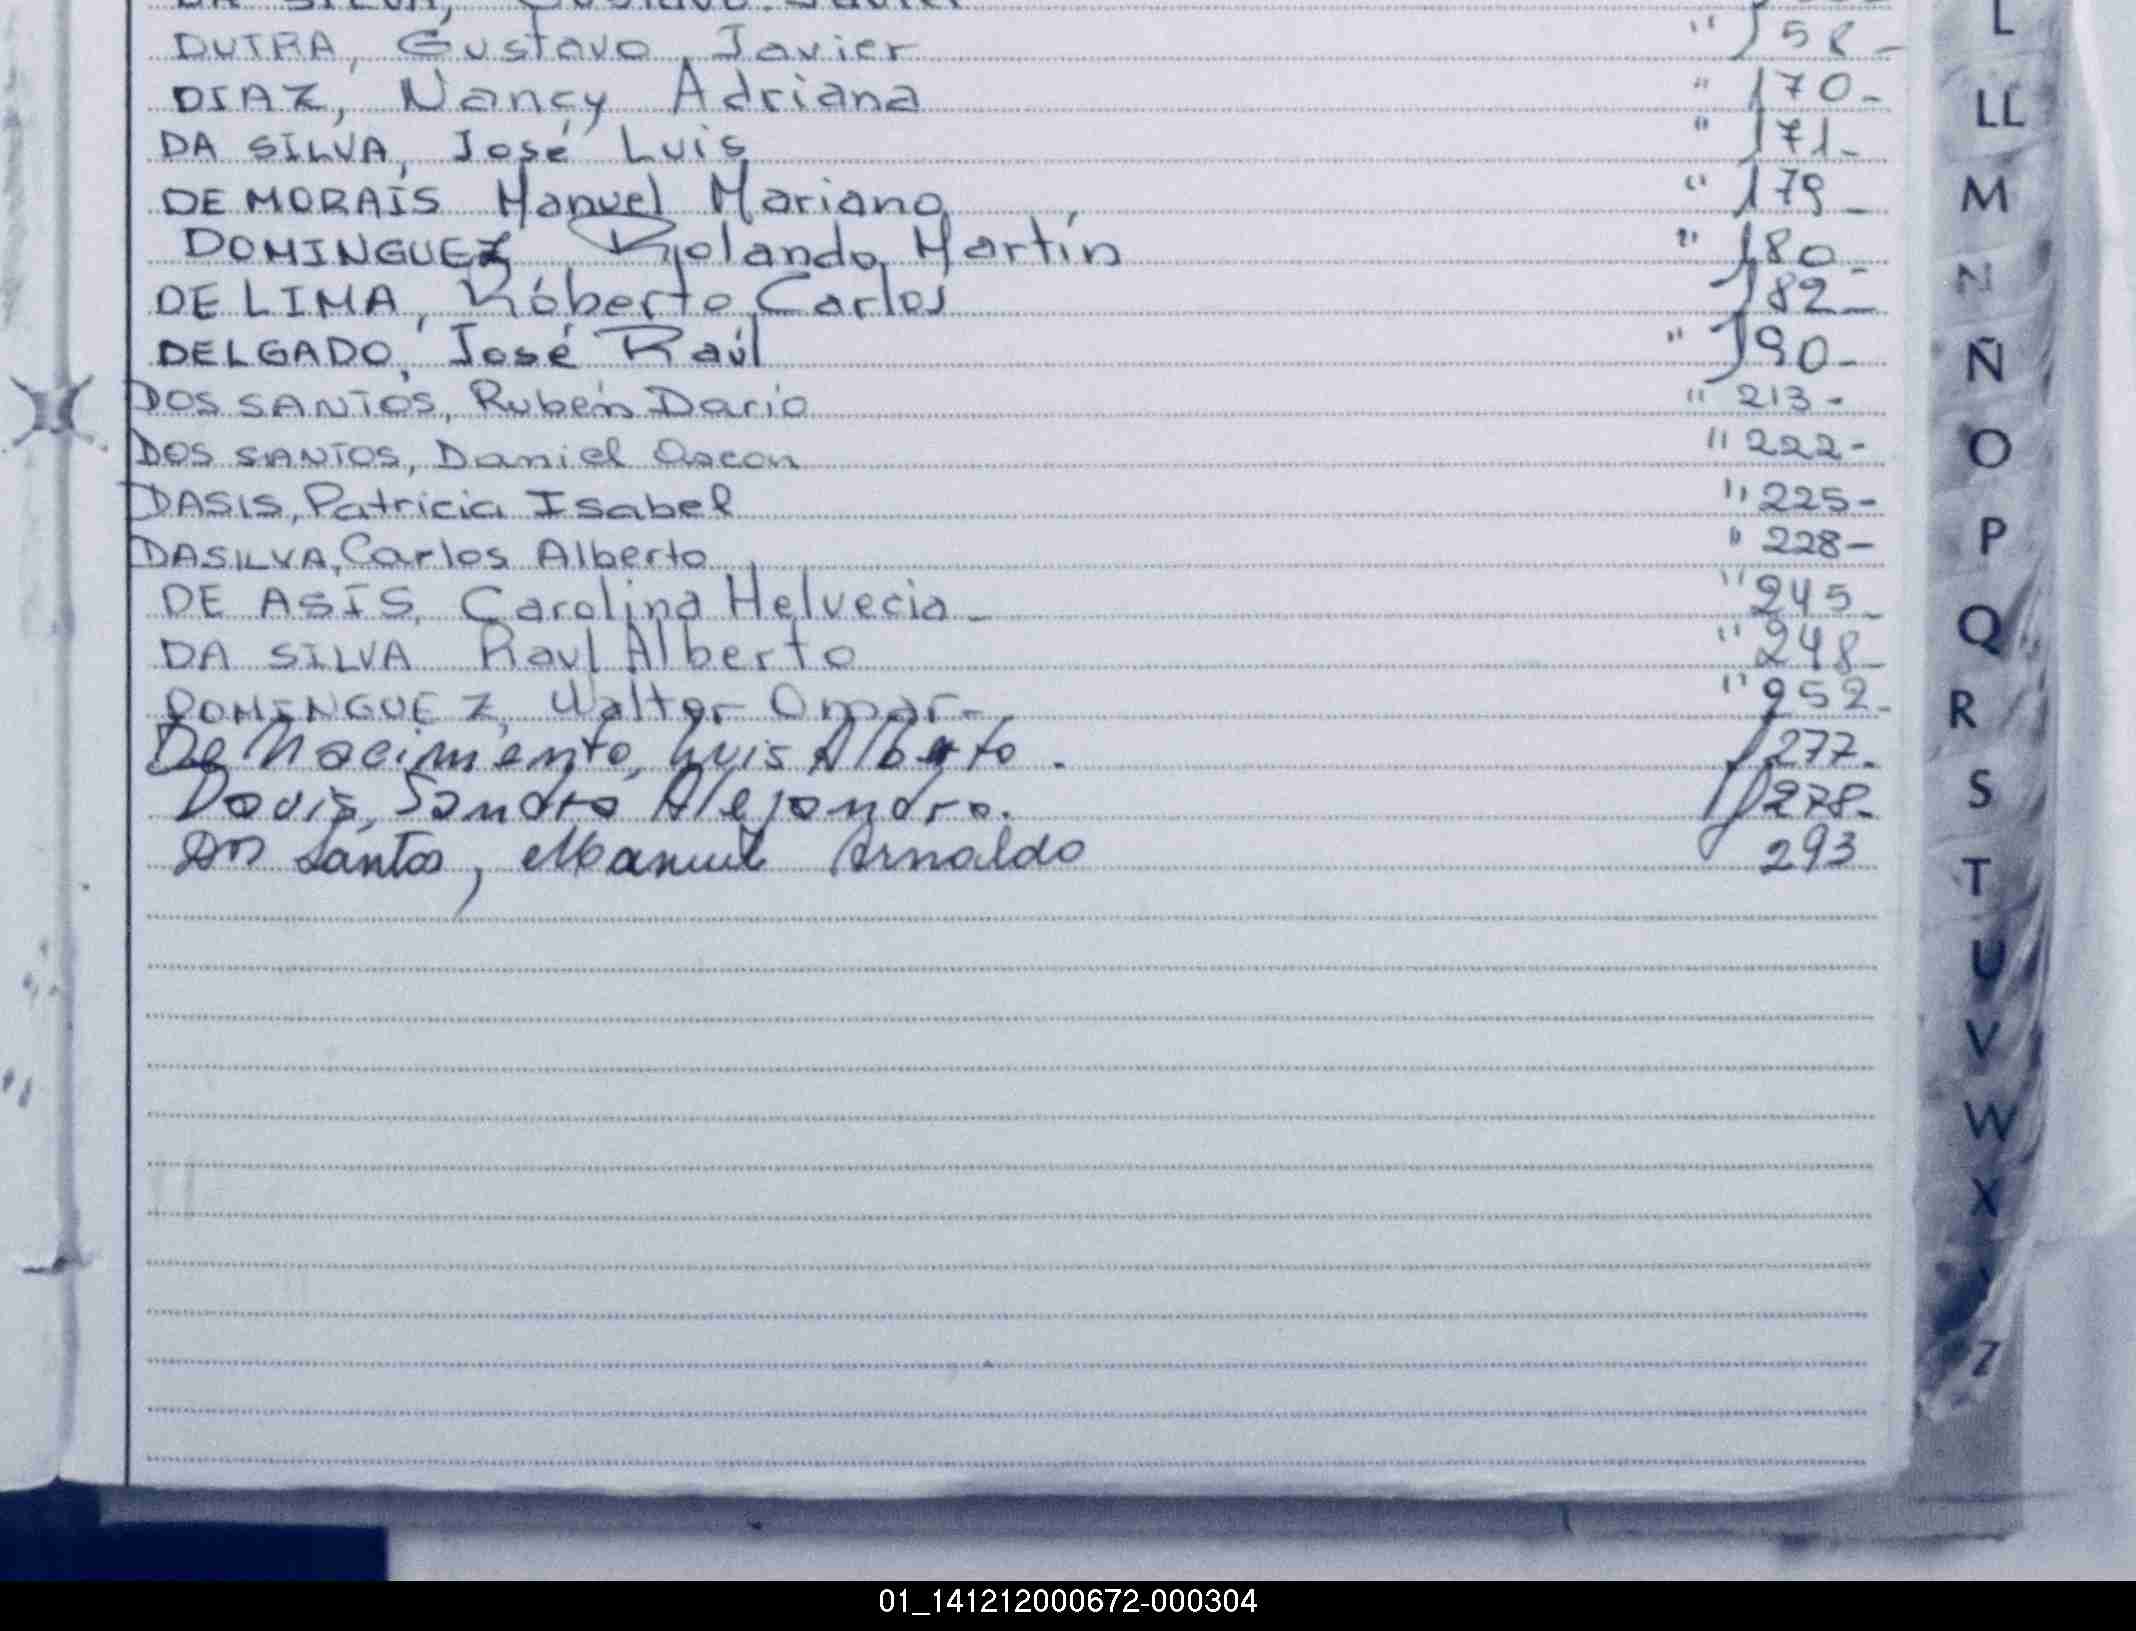 DA SILVA, Gustavo Javier
DUTRA, Gustavo Javier " 158-
DIAZ, Nancy Adriana " 170-
DA SILVA, José Luis " 171-
DE MORAIS Manuel Mariano " 179-
DOMINGUEZ Rolando Martín " 180-
DE LIMA, Roberto Carlos 182-
DELGADO, José Raúl " 190-
DOS SANTOS, Rubén Dario " 213-
DOS SANTOS, Daniel Oscar " 222-
DASIS, Patricia Isabel " 225-
DASILVA, Carlos Alberto " 228-
DE ASIS, Carolina Helvecia - " 245-
DA SILVA Raul Alberto " 248-
DOMINGUEZ, Walter Omar- " 252-
De Nacimiento, Luis Alberto. 277-
Davis, Sandro Alejandro. 278-
Dos Santos, Manuel Arnaldo 293
L
LL
M
N
Ñ
O
P
Q
R
S
T
U
V
W
X
Z
01_141212000672-000304